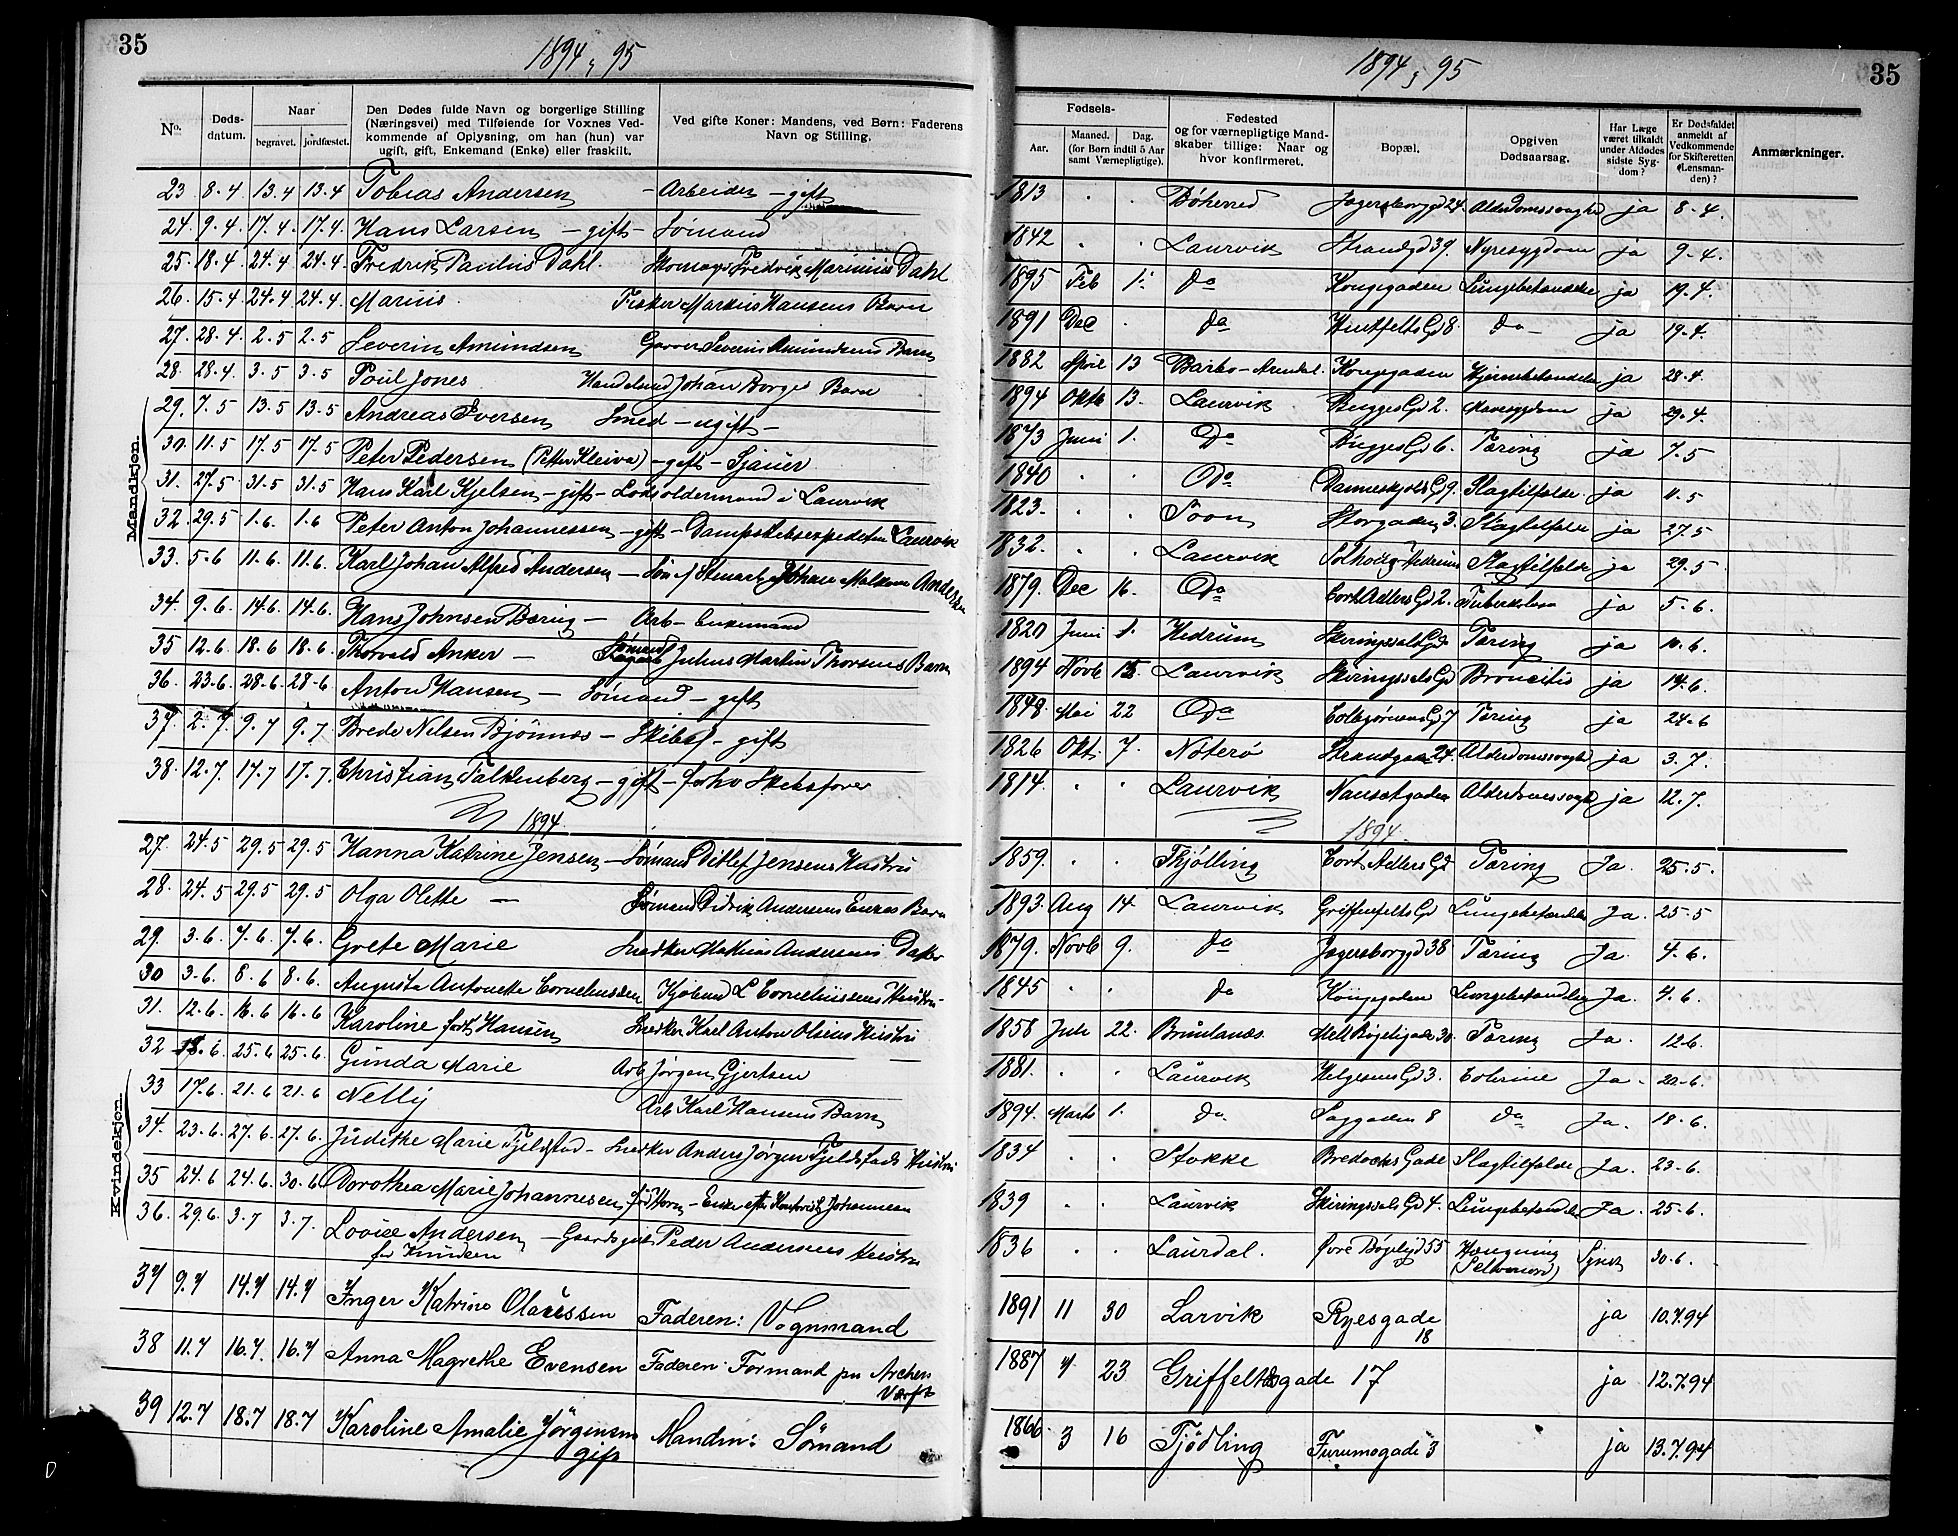 35
1894, 95
No. | Døds-datum. | Naar begravet. | jordfæstet. | Den Dødes fulde Navn og borgerlige Stilling (Næringsvei) med Tilføiende for Voxnes Vedkommende af Oplysning, om han (hun) var ugift, gift, Enkemand (Enke) eller fraskilt. | Ved gifte Koner: Mandens, ved Børn: Faderens Navn og Stilling.
Mandkjøn.
23 8-4 13.4 13.4 Tobias Andersen - Arbeider - gift
24. 9.4 17.4 17.4. Hans Larsen - gift - Sømand
25. 18.4 24.4 24.4 Fredrik Paulus Dahl. Fredrik Marinius Dahl
26. 15.4 24.4 24.4. Marius. Fisker Markus Hansens Barn
27. 28.4 2.5 2.5 Severin Amundsen Garver Severin Amundsens Barn
28. 28.4. 3.5 3.5 Poul Jones. Johan Borges Barn
29. 7.5 13.5 13.5 Andreas Iversen Smed - ugift -
30. 11.5 17.5 17.5 Peter Pedersen (Petter Kleiva) - gift - Sjauer
31. 27.5 31.5 31.5 Hans Karl Kjelsen - gift - Lodsoldermand i Laurvik
32. 29.5 1.6. 1.6 Peter Anton Johannessen - gift - Dampskibsexpeditør Laurvik
33. 5-6 11-6. 11.6. Karl Johan Alfred Andersen - Søn af Stuert Johan Andersen
34. 9.6. 14.6. 14.6. Hans Johnsen Bæring - Arb - Enkemand
35 12.6 18.6 18.6. Thorvald Anker - Sømand Julius Martin Thorsens Barn
36. 23-6. 28.6. 28-6 Anton Hansen - Sømand - gift
37. 2.7. 9.7 9.7 Brede Nilsen Bjönnæs - Skibsf - gift
38. 12.7. 17.7 17.7. Christian Falkenberg - gift - forhv Skibsfører
1894
Kvindekjøn.
27. 24.5 29.5 29.5 Hanna Katrine Jensen - Sømand Ditlef Jensens Hustru
28. 24.5 29.5 29.5 Olga Olette - Sømand Didrik Andersens Enkes Barn
29. 3.6 7.6. 7.6. Grete Marie Snedker Mathias Andersens Datter
30 3-6. 8.6 8.6. Augusta Antonette Corneliussen Kjøbmd L Corneliussens Hustru
31. 12.6 16.6 16.6 Karoline født Hansen Snedker Karl Anton Olsens Hustru
32 18.6. 25.6 25.6. Gunda Marie Arb Jørgen Gjertsen
33 17.6. 21.6 21.6 Nelly Arb Karl Hansens Barn
34. 23.6. 27.6. 27.6. Judithe Marie Fjeldstad - Snedker Anders Jørgen Fjeldstads Hustru
35 24.6 24.6. 30.6 Dorothea Marie Johannesen født Horn - Enke efter Johannesen
36. 29.6. 3.7 3.7. Lovise Andersen - Gaardsgut Peder Andersens Hustru
f. Knudsen
37 9.7 14.7 14.7 Inger Katrine Olaussen Faderen: Vognmand
38 11.7 16.7. 16.7 Anna Magrethe Evensen Faderen: Formand paa Archers
Værft
39 12.7 18.7 18.7 Karoline Amalie Jörgensen Manden: Sömand
gift
35
1894, 95
Fødsels- Aar. | Maaned. | Dag. (for Børn indtil 5 Aar samt Værnepligtige). | Fødested og for værnepligtige Mandskaber tillige: Naar og hvor konfirmeret. | Bopæl. | Opgiven Dødsaarsag. | Har Læge været tilkaldt under Afdødes sidste Sygdom? | Er Dødsfaldet anmeldt af Vedkommende for Skifteretten (Lensmanden)? | Anmærkninger.
1813 . . Bøherred Jegersborggd 24. Alderdomssvaghed ja 8-4.
1842 . . Laurvik Strandgd 39. Nyresygdom ja 9-4.
1895 Feb 1. do Kongegaden Lungebetændelse ja 19.4.
1891 Dec . do Huitfelts Gd 8. do - ja 19.4.
1882 April 13 Barbo - Arendal. Kongegaden Hjernebetændelse ja 28.4.
1894 Oktb 13. Laurvik Bugges Gd 2. Mavesygdom ja 29.4
1873 Juni 1. Do Bugges Gd 6. Tæring ja 7.5
1840 . . Do Danneskjolds Gd 9. Slagtilfælde ja 11.5
1823. . . Soon Storgaden 3. Slagtilfælde ja 27.5
1832. . . Laurvik Hedrum Slagtilfælde ja 29.5
1879. Dec 16. Do Cort Adlers Gd 2. Tuberkulose ja 5-6.
1820 Juni 1. Hedrum Skiringssals Gd Tæring ja 10.6.
1894 Novb 15. Laurvik Skiringssals Gd Broncitis ja 14.6.
1848. Mai 22 Do Colbjørnsens Gd 7 Tæring ja 24.6
1826 Okt. 7. Nøterø Strandgaden 24. Alderdomssvaghed ja 3.7.
1814. . . Laurvik Nansetgaden Alderdomssvagh ja 12.7.
1894.
1859. . . Thjølling Cort Adlers Gd Tæring Ja. 25.5.
1893. Aug 14 Laurvik Griffenfelts Gd Lungebetændelse Ja. 25.5
1879. Novb 9. do Jegersborggd 38 Tæring Ja. 4.6.
1845 . . do Kongegaden Lungebetændelse Ja. 4.6.
1858 Juli 22. Brunlanæs. Mell Bøgeligade 30. Tæring Ja. 12.6.
1881. . . Laurvik Helgesens Gd 3. Colerine Ja. 20.6.
1894. Marts 1. do Saggaden 8 do Ja. 18.6.
1834 . . Stokke Bredochs Gade Slagtilfælde Ja. 23-6.
1839 . . Laurvik Skiringssals Gd 4. Lungebetændelse Ja. 25-6.
1836 . . Laurdal. Øvre Bøgeligd 55 Hængning
(Selvmord) Synet 30-6.
1891 11 30 Larvik Ryesgade
18 ja 10.7.94
1887 7 23 Griffeltdsgade 17 ja 12.7.94
1866 3 16 Tjödling Furumogade 3 ja 13.7.94